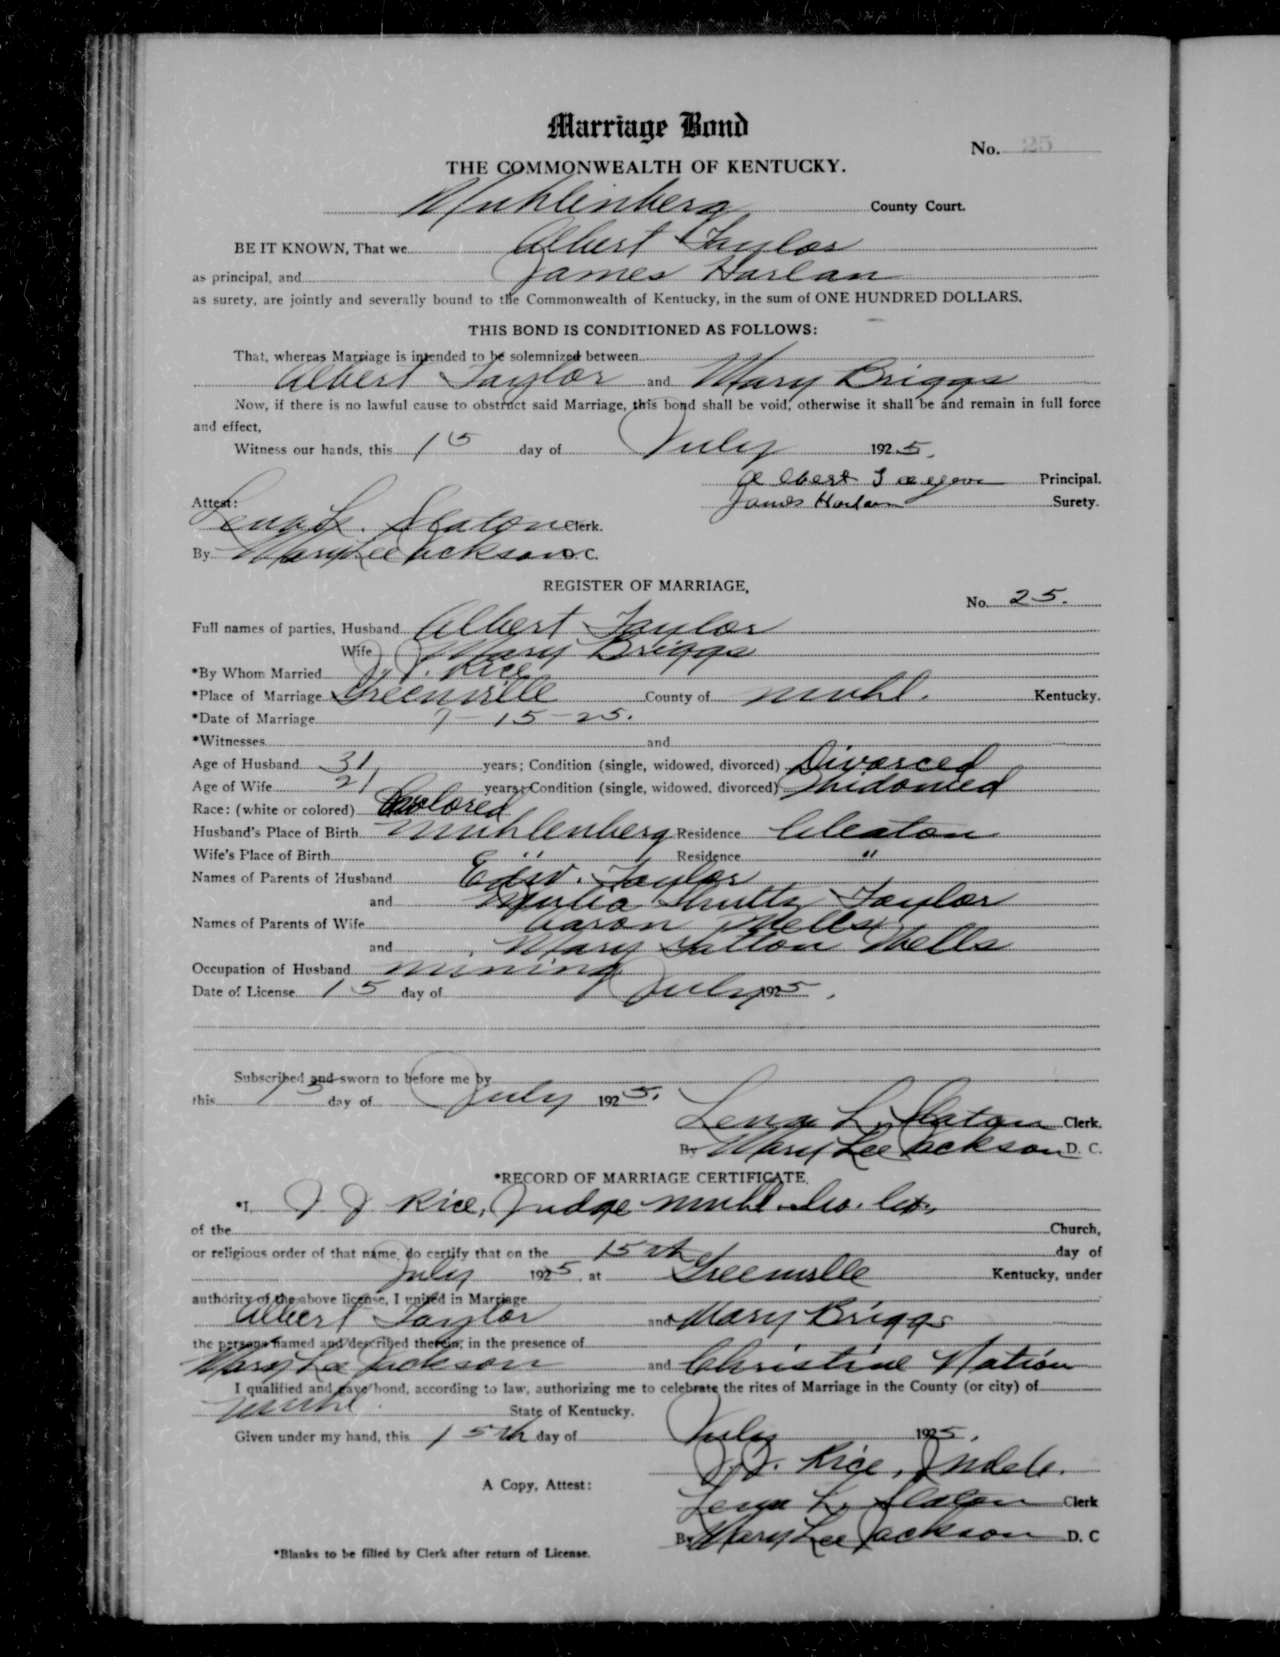 Marriage Bond
No. 25
THE COMMONWEALTH OF KENTUCKY.
Muhlenberg County Court.
BE IT KNOWN, That we Albert Taylor
as principal, and James Harlan
as surety, are jointly and severally bound to the Commonwealth of Kentucky, in the sum of ONE HUNDRED DOLLARS.
THIS BOND IS CONDITIONED AS FOLLOWS:
That, whereas Marriage is intended to be solemnized between
Albert Taylor and Mary Briggs
Now, if there is no lawful cause to obstruct said Marriage, this bond shall be void, otherwise it shall be and remain in full force
and effect,
Witness our hands, this 15 day of July 1925.
Albert Principal.
Attest: James Harlan Surety.
Lena L. Slaton Clerk.
By Mary Lee Jackson D. C.
REGISTER OF MARRIAGE,
No. 25.
Full names of parties, Husband Albert Taylor
Wife Mary Briggs
*By Whom Married J. J. Rice
*Place of Marriage Greenville County of Muhl. Kentucky.
*Date of Marriage 7-15-25.
*Witnesses and
Age of Husband 31 years; Condition (single, widowed, divorced) Divorced
Age of Wife 21 years; Condition (single, widowed, divorced) Widowed
Race: (white or colored) Colored
Husband's Place of Birth Muhlenberg Residence Cleaton
Wife's Place of Birth " Residence "
Names of Parents of Husband Edw. Taylor
and Taylor
Names of Parents of Wife Aaron Wells
and Mary Wells
Occupation of Husband mining
Date of License 15 day of July 1925.
Subscribed and sworn to before me by
this 15 day of July 1925.
Lena L. Slaton Clerk.
By Mary Lee Jackson D. C.
*RECORD OF MARRIAGE CERTIFICATE.
*I, J J Rice, Judge Muhl. Co. Ct.
of the Church,
or religious order of that name, do certify that on the 15th day of
July 1925, at Greenville Kentucky, under
authority of the above license, I united in Marriage
Albert Taylor and Mary Briggs
the persons named and described therein, in the presence of
Mary Lee Jackson and Christine Nation
I qualified and gave bond, according to law, authorizing me to celebrate the rites of Marriage in the County (or city) of
Muhl. State of Kentucky.
Given under my hand, this 15th day of July 1925.
J. J. Rice,
A Copy, Attest:
Lena L. Slaton Clerk
By Mary Lee Jackson D. C
*Blanks to be filled by Clerk after return of License.